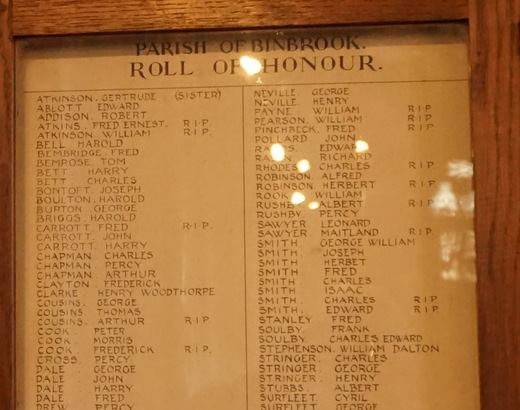 PARISH OF BINBROOK.
ROLL OF HONOUR.
ATKINSON. GERTRUDE (SISTER)
ABLOTT EDWARD
ADDISON. ROBERT
ATKINS. FRED ERNEST. R.I.P.
ATKINSON WILLIAM R.I.P.
BELL HAROLD
BEMBRIDGE. FRED
BEMROSE. TOM
BETT HARRY
BETT CHARLES
BONTOFT. JOSEPH
BOULTON. HAROLD
BURTON GEORGE
BRIGGS. HAROLD
CARROTT. FRED R.I.P.
CARROTT. JOHN
CARROTT. HARRY
CHAPMAN. CHARLES
CHAPMAN PERCY
CHAPMAN ARTHUR
CLAYTON. FREDERICK
CLARKE. HENRY WOODTHORPE
COUSINS. GEORGE
COUSINS. THOMAS
COUSINS. ARTHUR R.I.P.
COOK PETER
COOK MORRIS
COOK FREDERICK R.I.P.
CROSS. PERCY
DALE GEORGE
DALE JOHN
DALE HARRY
DALE FRED
DREW PERCY
NEVILLE. GEORGE
NEVILLE. HENRY
PAYNE WILLIAM R.I.P.
PEARSON. WILLIAM R.I.P.
PINCHBECK. FRED R.I.P.
POLLARD. JOHN
EDWARD
RICHARD
RHODES CHARLES R.I.P.
ROBINSON ALFRED
ROBINSON. HERBERT R.I.P.
ROOK WILLIAM
ALBERT R.I.P.
RUSHBY. PERCY
SAWYER LEONARD
SAWYER MAITLAND R.I.P.
SMITH GEORGE WILLIAM
SMITH. JOSEPH
SMITH HERBET
SMITH FRED
SMITH CHARLES
SMITH ISAAC
SMITH. CHARLES R.I.P.
SMITH. EDWARD R.I.P.
STANLEY FRED
SOULBY. FRANK
SOULBY. CHARLES EDWARD
STEPHENSON. WILLIAM DALTON
STRINGER. CHARLES
STRINGER. GEORGE
STRINGER. HENRY
STUBBS ALBERT
SURFLEET. CYRIL
SURFLEET GEORGE